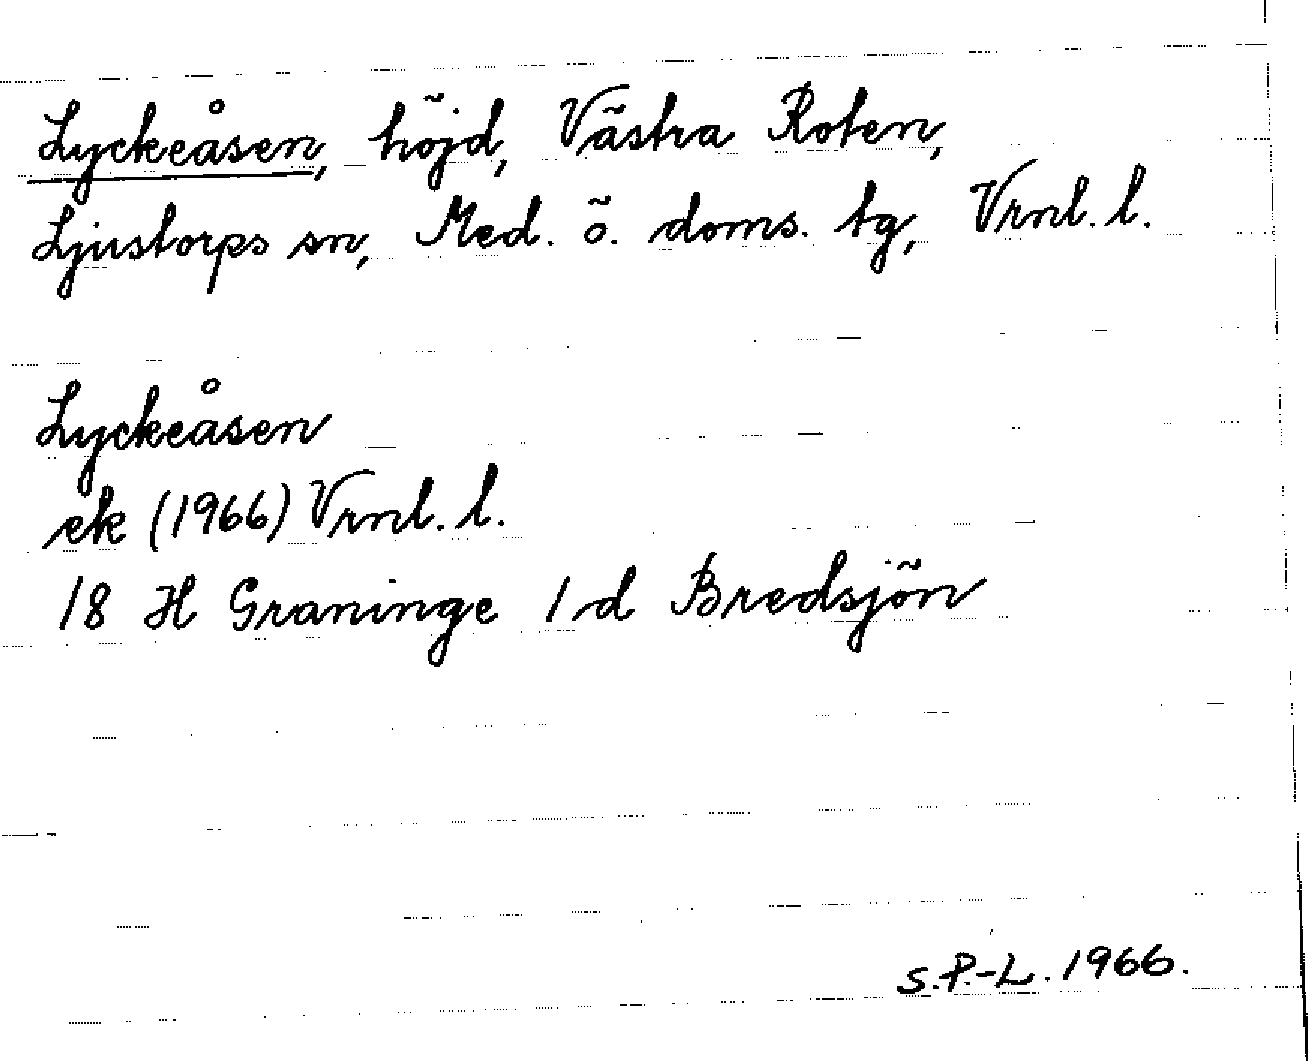 Lyckeåsen, höjd, Västra Roten,
Ljustorps sn, Med. ö. doms. tg, Vrnl. l.
Lyckeåsen
ek (1966) Vrnl. l.
18 H Graninge 1 d Bredsjön
S.P.-L. 1966.